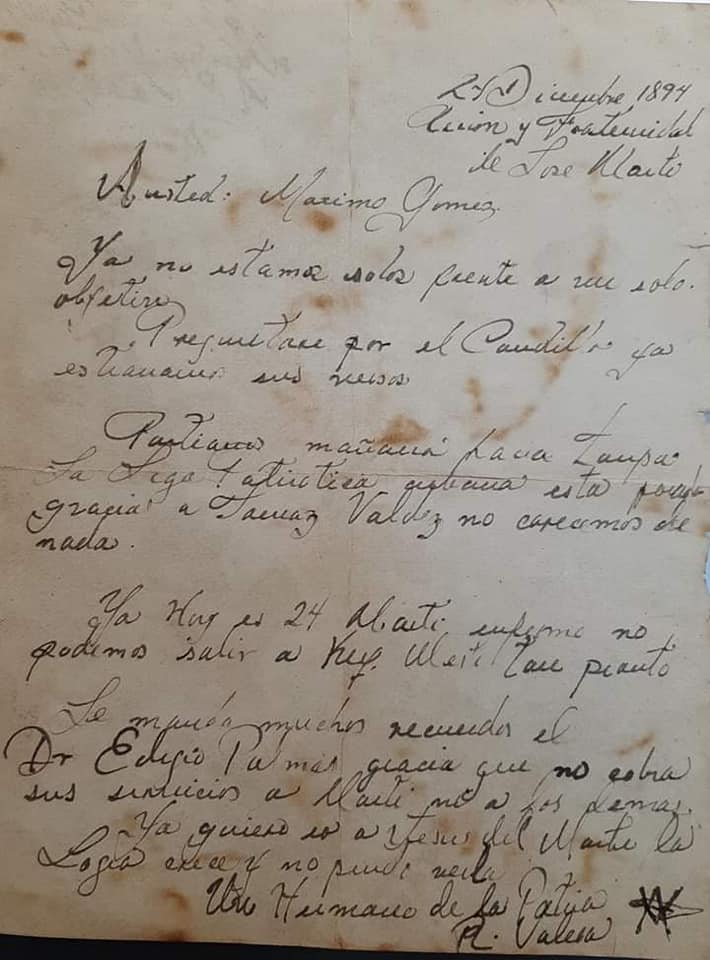 Diciembre 1894
y Fraternidad
de Jose Marti
A usted: Maximo Gomez.
Ya no estamos solos frente a un solo.
objetivo
por el Caudillo ya
sus versos
Partiamos mañana para Tanpa
La Liga Patriotica cubana esta
gracia a Valdez no carecemos de
nada.
Ya Hoy es 24 Marti enfermo no
podemos salir a Key. West tan pronto
Le manda muchos recuerdos el
Dr Eligio Palmas gracia que no cobra
sus servicios a Marti ni a los demas.
Ya quiero a Jesus del Monte la
Logia crece y no puedo verla
Un Hermano de la Patria
R. Valera